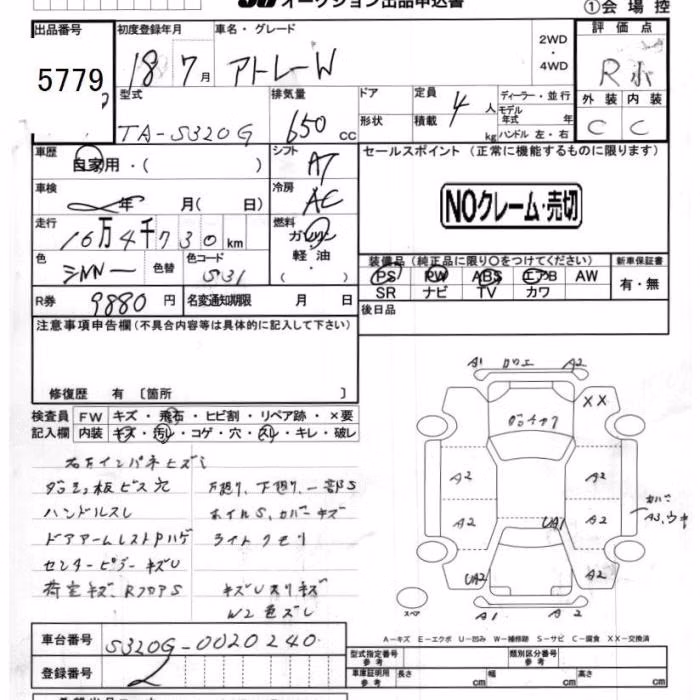 オークション出品申込書
①会場控
出品番号
5779
初度登録年月
18 7月
車名・グレード
アトレーW
2WD
・
4WD
評価点
R小
外装 内装
C C
型式
TA-S320G
排気量
650 cc
ドア
形状
定員
4人
積載
kg
ディーラー・並行
モデル
年式 年
ハンドル 左・右
車歴
自家用・( )
シフト
AT
車検
年 月( 日)
冷房
AC
走行
16万4千730km
燃料
ガソリン
軽油・
( )
色
シルバー
色替
色コード
S31
R券 9880円
名変通知期限 月 日
セールスポイント(正常に機能するものに限ります)
NOクレーム・売切
装備品(純正品に限り〇をつけてください)
PS PW ABS エアB AW
SR ナビ TV カワ
新車保証書
有・無
後日品
注意事項申告欄(不具合内容等は具体的に記入して下さい)
修復歴 有〔箇所 〕
検査員
記入欄
FW キズ・飛石・ヒビ割・リペア跡・×要
内装 キズ・汚れ・コゲ・穴・スレ・キレ・破レ
右方インパネヒズミ
ダッシュ板ビス穴
ハンドルスレ
ドアアームレストPハゲ
センターピラーキズU
荷室キズ RフロアS
下廻り、一部S
ホイルS、カバーキズ
ライトクモリ
キズUスリキズ
W2色ズレ
A1 A2
XX
A2 A2
A2 UA1 A2
カバー
A3、ウキ
UA2 A2
A1 A2
スペア
A－キズ E－エクボ U－凹み W－補修跡 S－サビ C－腐食 XX－交換済
車台番号
S320G-0020240
登録番号
2
型式指定番号
参考
類別区分番号
参考
車庫証明用
参考
長さ cm
幅 cm
高さ cm